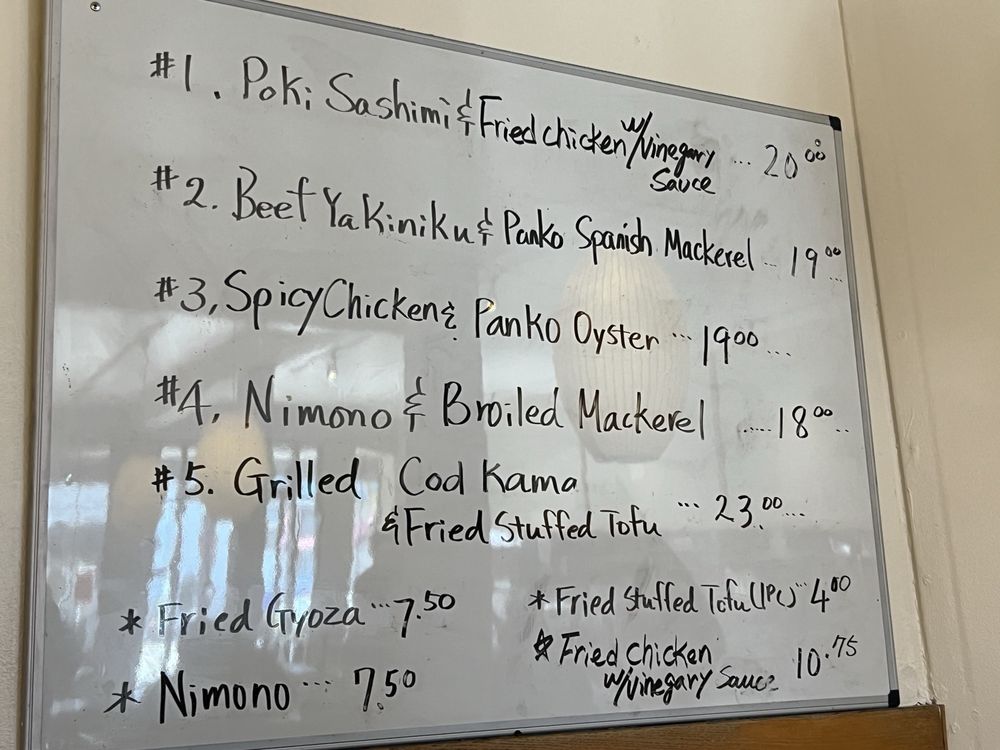 #1. Poki Sashimi & Fried chicken w/Vinegary Sauce ... 20.00
#2. Beef Yakiniku & Panko Spanish Mackerel ... 19.00...
#3, Spicy Chicken & Panko Oyster ... 19.00 ...
#4, Nimono & Broiled Mackerel ..... 18.00..
#5. Grilled Cod Kama
& Fried Stuffed Tofu ... 23.00....
* Fried Gyoza ... 7.50
* Nimono ... 7.50
* Fried Stuffed Tofu (1pc) ... 4.00
* Fried chicken
w/Vinegary Sauce 10.75